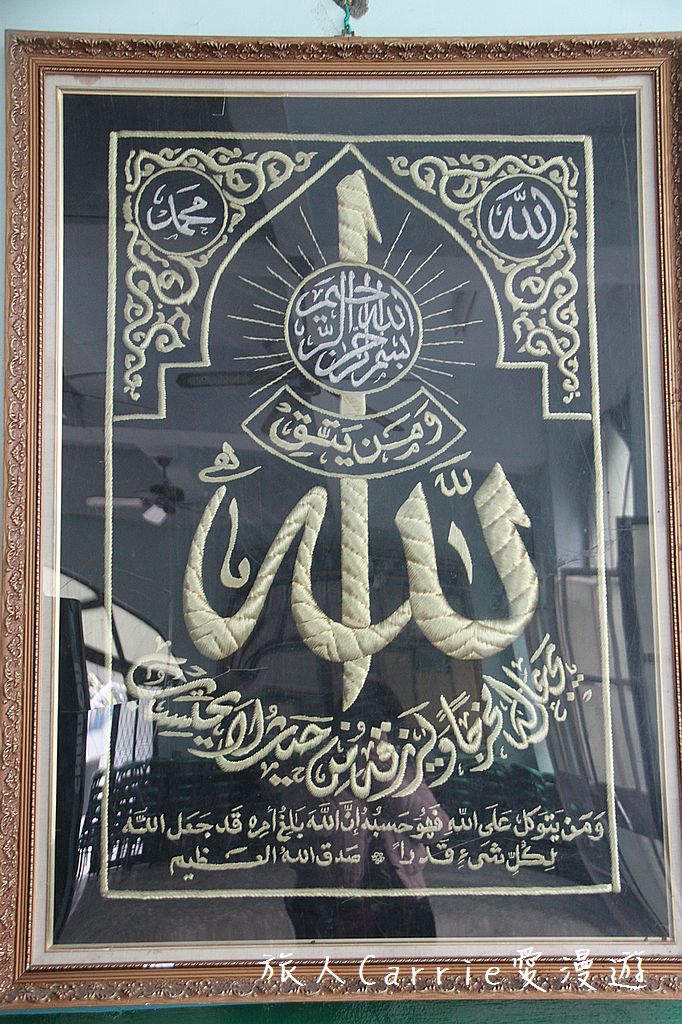 الله
محمد
بسم الله الرحمن الرحيم
ومن يتق
الله
يجعل له مخرجا ويرزقه من حيث لا يحتسب
وَمَن يتوكل عَلَى اللهِ فَهُوَ حَسْبُهُ إِنَّ اللهَ بَالِغُ أمرِهِ قَد جَعَلَ اللهُ
لِكُلِّ شَيءٍ قَدراً صَدَقَ اللهُ العَظِيم
旅人Carrie愛漫遊